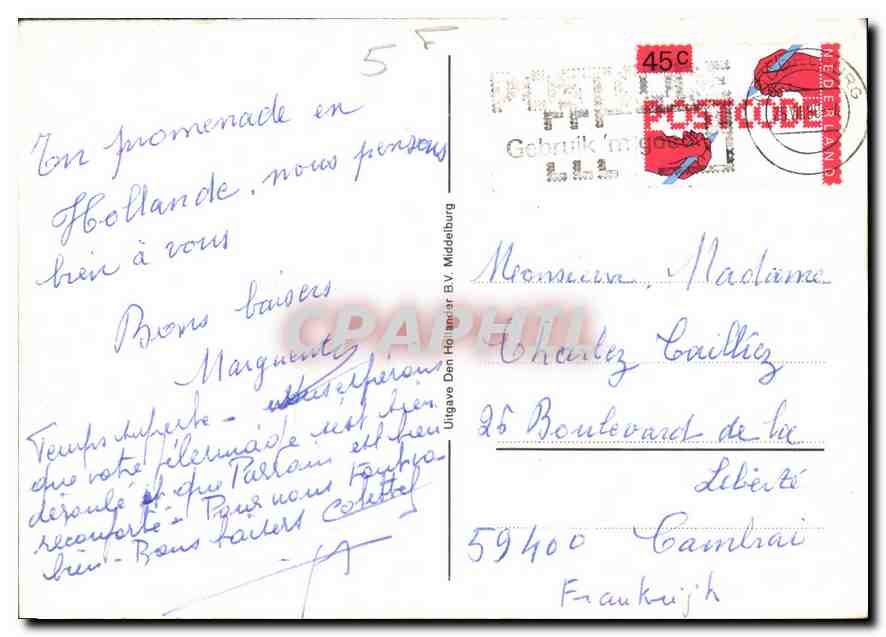 5 F
En promenade en
Hollande, nous pensons
bien à vous
Bons baisers
Marguerite
Temps superbe - espérons
que votre pélerinade s'est bien
déroulé et que Parrain est bien
réconforté - Pour nous tout va
bien - Bons baisers Colette
Uitgave Den Hollander B.V. Middelburg
45c
NEDERLAND
POSTCODE
POSTCODE
Gebruik 'm
Monsieur, Madame
Charlez Cailliez
25 Boulevard de la
Liberté
59400 Cambrai
Frankrijh
CPAPHIL